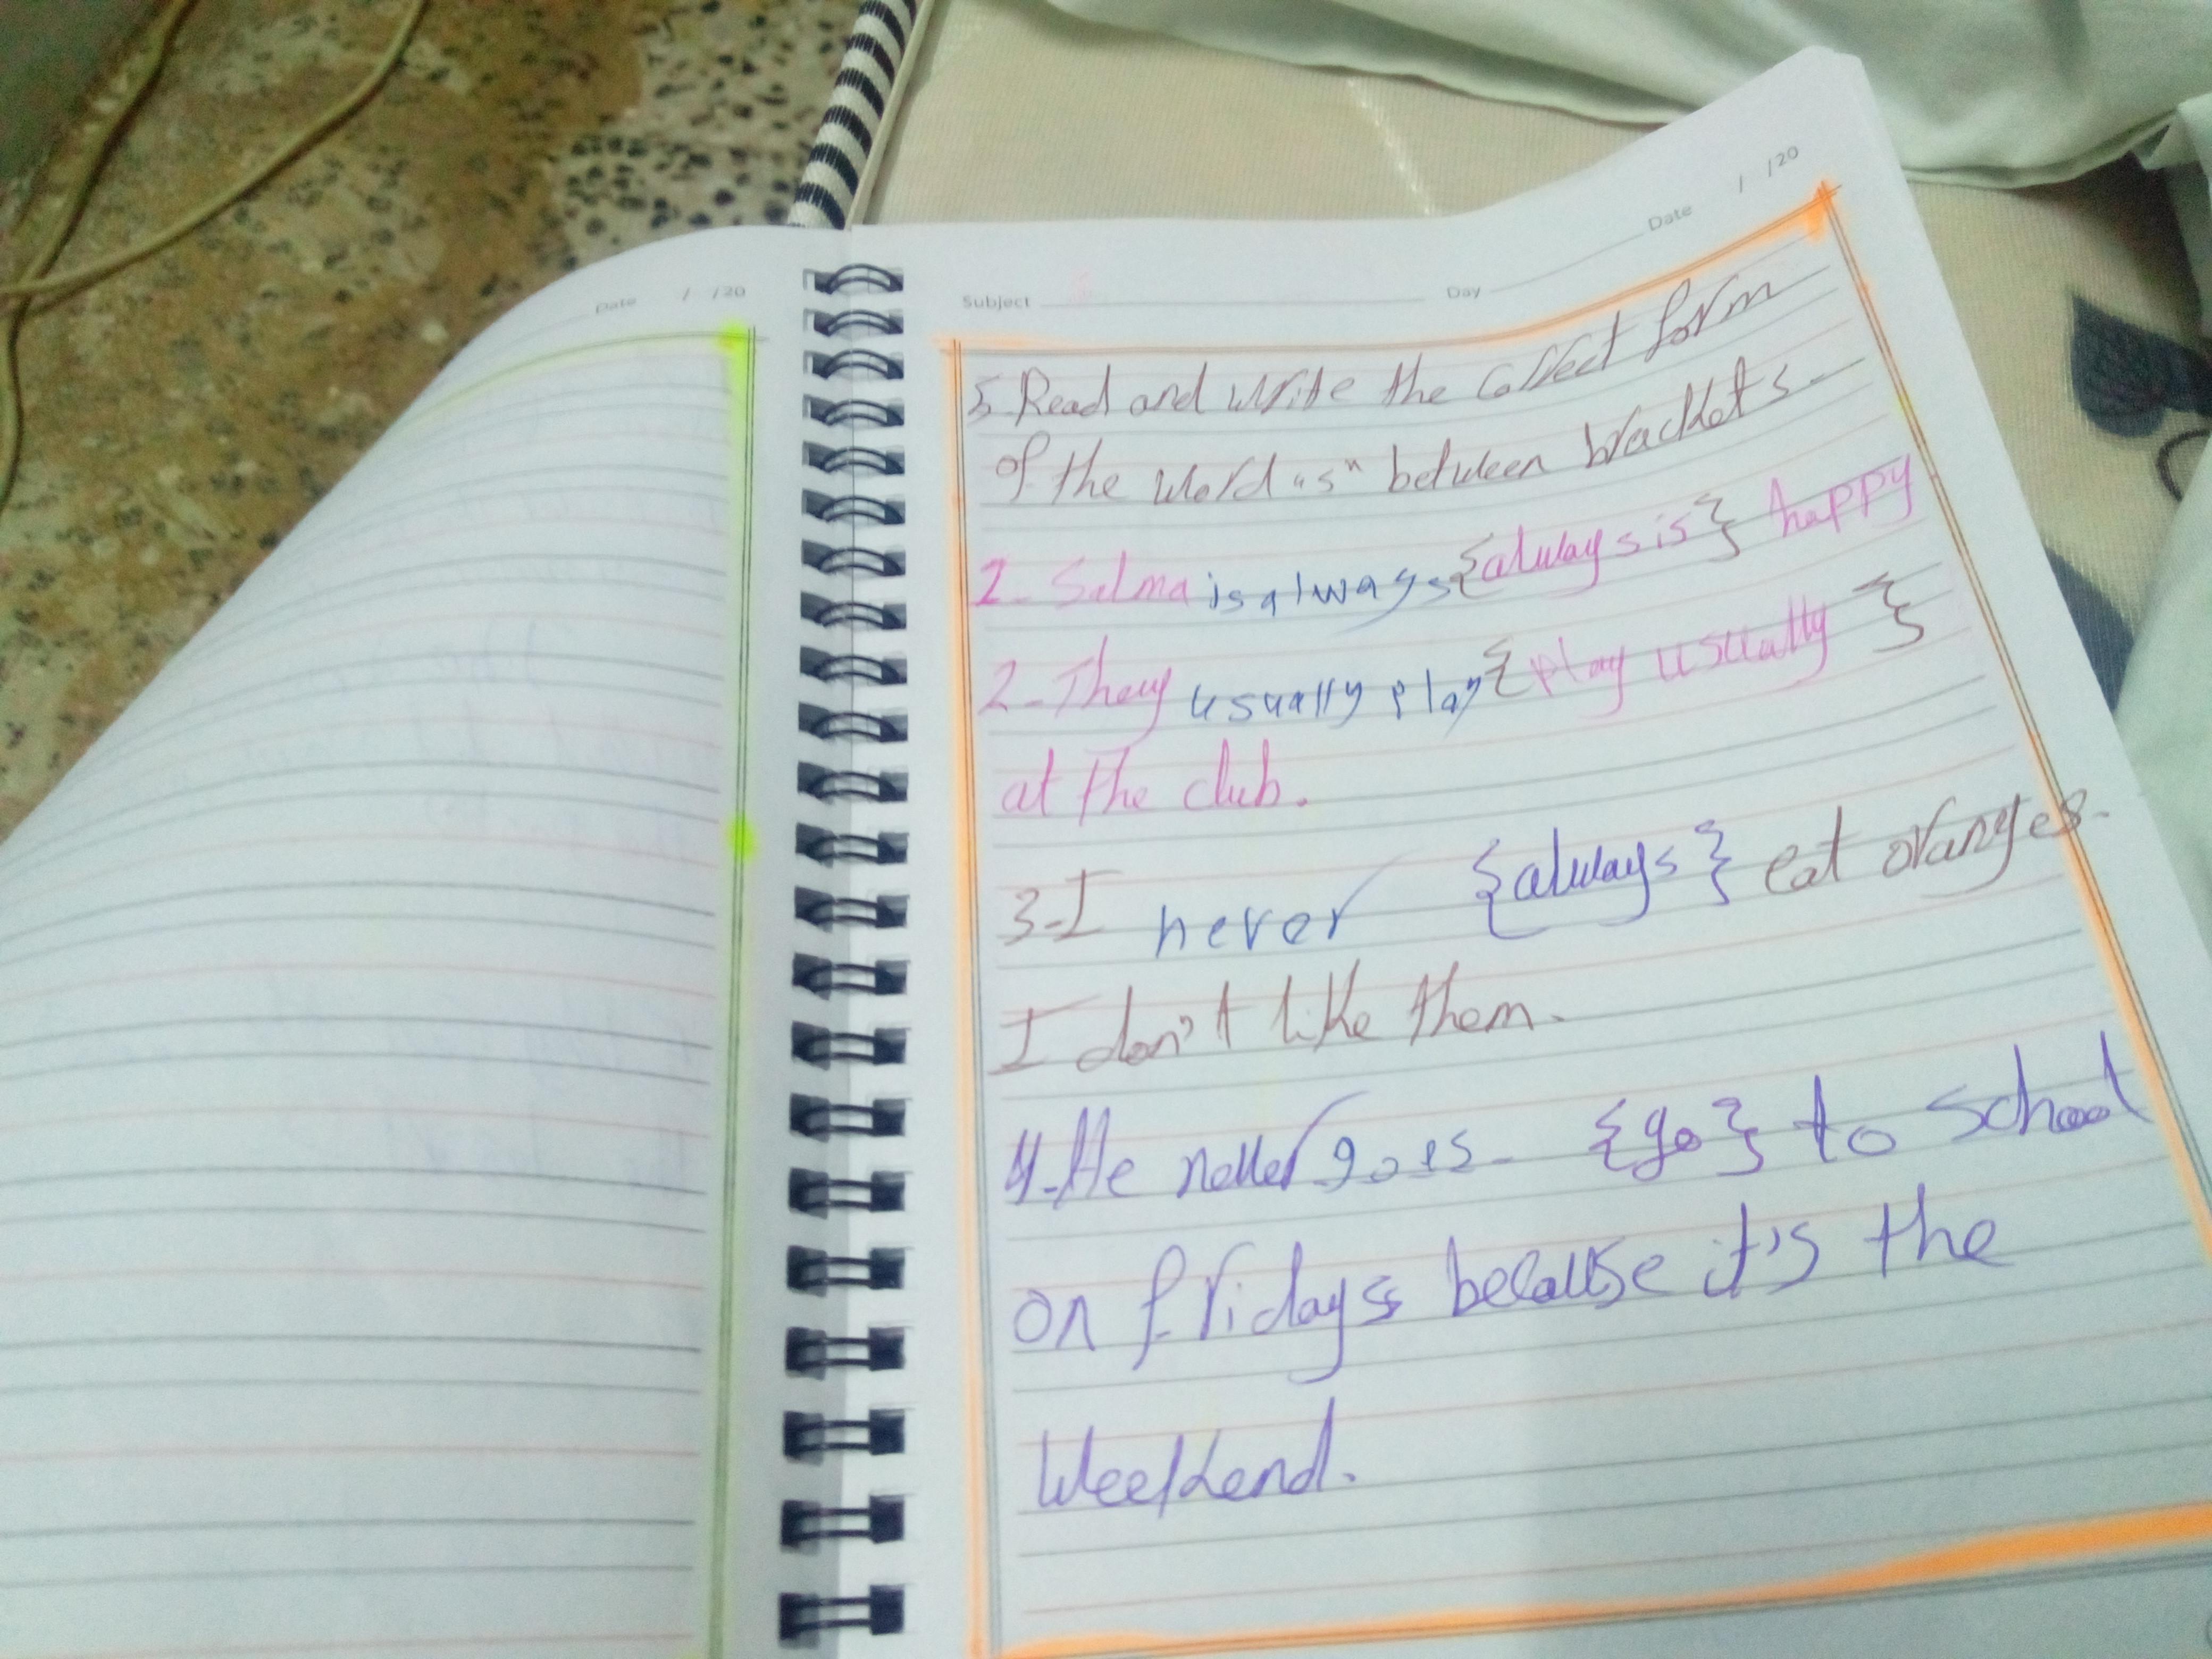 Date / /20
Subject Day Date / /20
5. Read and write the correct form
of the word "s" between brackets.
1- Salma is always {always is} happy
2- They usually play {play usually}
at the club.
3- I never {always} eat oranges.
I don't like them.
4- He never goes {go} to school
on fridays because it's the
Weekend.